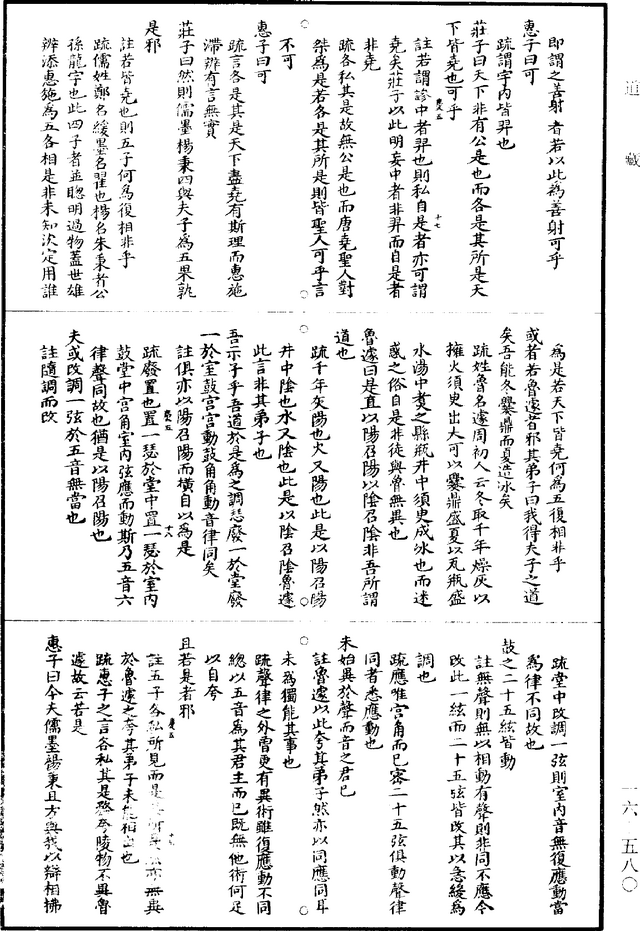 道藏
即謂之善射者若以此為善射可乎
惠子曰可
疏謂宇内皆羿也
莊子曰天下非有公是也而各是其所是天
下皆堯也可乎
註若謂謬中者羿也則私自是者亦可謂
堯矣莊子以此明妄中者非羿而自是者
非堯
疏各私其是故無公是也而唐堯聖人對
桀為是若各是其所是則皆聖人可乎言
不可
惠子曰可
疏言各是其是天下盡堯有斯理而惠施
滯辯有言無實
莊子曰然則儒墨楊秉四與夫子為五果孰
是邪
註若皆堯也則五子何為復相非乎
疏儒姓鄭名緩墨名翟也楊名朱秉者公
孫龍字也此四子者並聰明過物蓋世雄
辯添惠施為五各相是非未知決定用誰
為是若天下皆堯何為五復相非乎
或者若魯遽者邪其弟子曰我得夫子之道
矣吾能冬爨鼎而夏造冰矣
疏姓魯名遽周初人云冬取千年燥灰以
擁火須臾出火可以爨鼎盛夏以瓦瓶盛
水湯中煑之縣瓶井中須臾成冰也而迷
惑之俗自是非徒與魯無異也
魯遽曰是直以陽召陽以陰召陰非吾所謂
道也
疏千年灰陽也火又陽也此是以陽召陽
井中陰也水又陰也此是以陰召陰魯遽
此言非其弟子也
吾示子乎吾道於是為之調瑟廢一於堂廢
一於室鼓宮宮動鼓角角動音律同矣
註俱亦以陽召陽而橫自以為是
疏廢置也置一瑟於堂中置一瑟於室内
鼓堂中宮角室内弦應而動斯乃五音六
律聲同故也猶是以陽召陽也
夫或改調一弦於五音無當也
註隨調而改
疏堂中改調一弦則室内音無復應動當
為律不同故也
鼓之二十五絃皆動
註無聲則無以相動有聲則非同不應今
改此一絃而二十五弦皆改其以急緩為
調也
疏應唯宮角而已密二十五弦俱動聲律
同者悉應動也
未始異於聲而音之君已
註魯遽以此夸其弟子然亦以同應同耳
未為獨能其事也
疏聲律之外曾更有異術雖復應動不同
總以五音為其君主而已既無他術何足
以自夸
且若是者邪
註五子各私所見而是其所是然亦無異
於魯遽之夸其弟子未能相出也
疏惠子之言各私其是務夸陵物不異魯
遽故云若是
惠子曰今夫儒墨楊秉且方與我以辯相拂
一六·五八〇